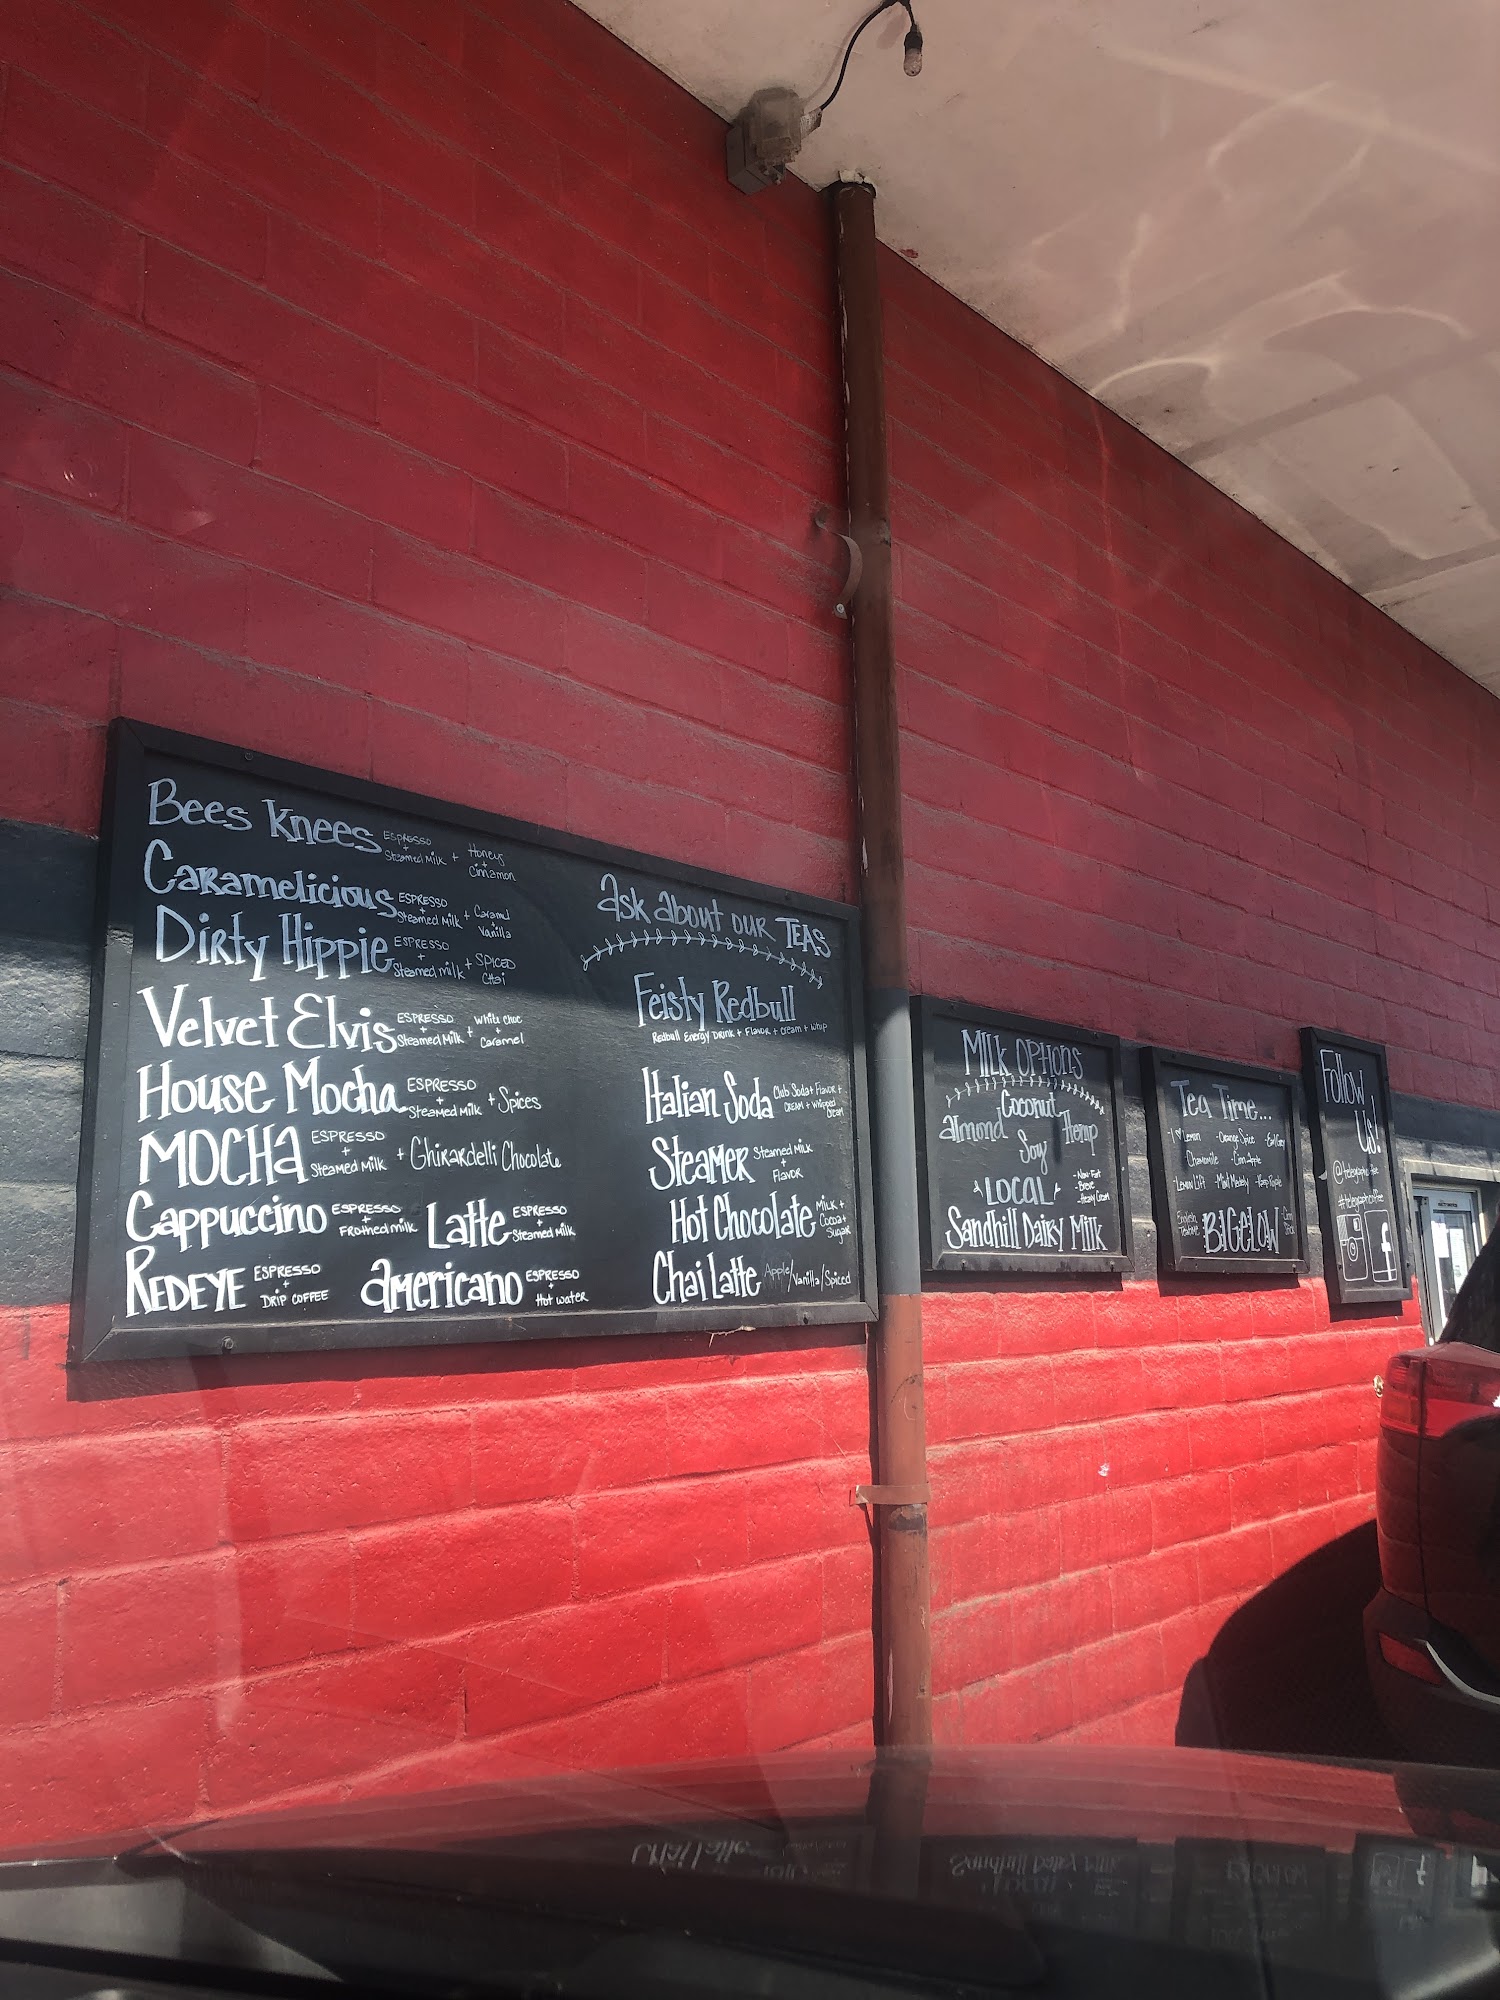 Bees Knees ESPRESSO + Steamed Milk + Honey + Cinnamon
Caramelicious ESPRESSO + Steamed Milk + Caramel + Vanilla
Dirty Hippie ESPRESSO + Steamed milk + SPICED CHai
Velvet Elvis ESPRESSO + Steamed Milk + White Choc + Caramel
House Mocha ESPRESSO + Steamed Milk + Spices
MOCHA ESPRESSO + Steamed Milk + Ghirardelli Chocolate
Cappuccino ESPRESSO + Frothed milk
Latte ESPRESSO + Steamed Milk
REDEYE ESPRESSO + DRIP COFFEE
americano ESPRESSO + Hot water
ask about our TEAS
Feisty Redbull
Redbull Energy Drink + Flavor + Cream + Whip
Italian Soda Club Soda + Flavor + CREAM + Whipped Cream
STEAMER Steamed Milk + Flavor
Hot Chocolate MILK + Cocoa + Sugar
Chai Latte Apple/Vanilla/Spiced
Milk OPtiONS
Coconut
almond Hemp
Soy
- Non-Fat
- Breve
- Heavy Cream
LOCAL
Sandhill Dairy Milk
Tea Time...
- I ♥ Lemon - Orange Spice - Earl Grey
Chamomile - Cinn. Apple
- Lemon Lift - Mint Medely
English Teatime BIGELOW
Follow
Us!
#telegraphcoffee
f